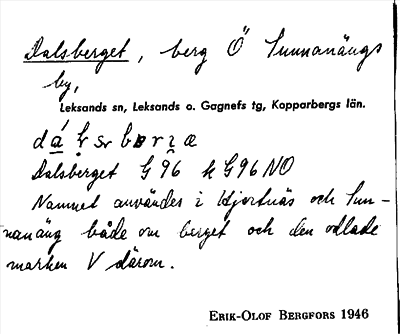 Dalsberget, berg Ö Sunnanängs
by,
Leksands sn, Leksands o. Gagnefs tg, Kopparbergs län.
Dalsberget G 96 k G 96 NO
Namnet användes i Hjortnäs och Sun-
nanäng både om berget och den odlade
marken V därom.
ERIK-OLOF BERGFORS 1946